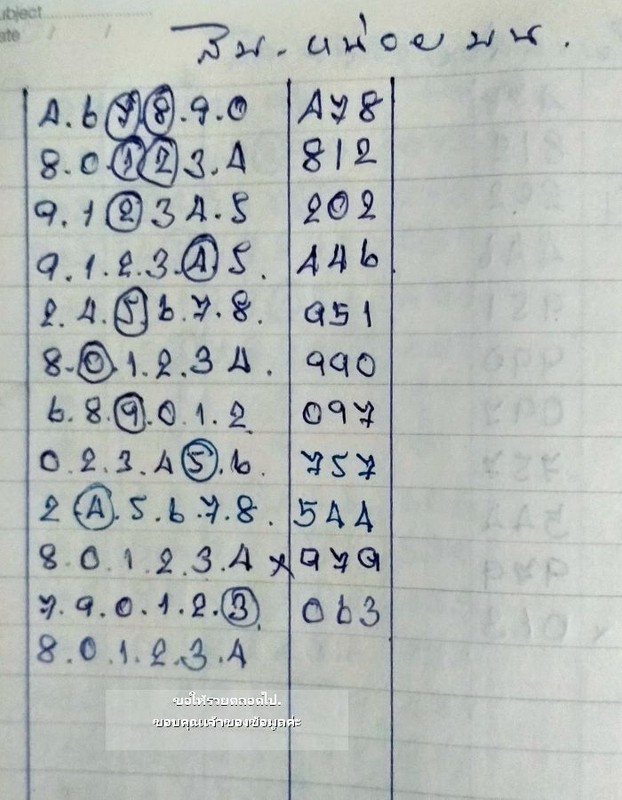 ubject
ate
สิบ.หน่วย บน.
4.6 7 8.9.0 478
8.0.1 2 3.4 812
9.1 2 3 4.5 202
9.1.2.3.4 5. 446
2.4.5 6.7.8. 951
8.0.1.2.3 4. 990
6.8.9.0.1.2 097
0.2.3.4 5.6. 757
2 4.5.6.7.8. 544
8.0.1.2.3.4 x 979
7.9.0.1.2.3 063
8.0.1.2.3.4
ขอให้รวยตลอดไป.
ขอบคุณเจ้าของข้อมูลค่ะ